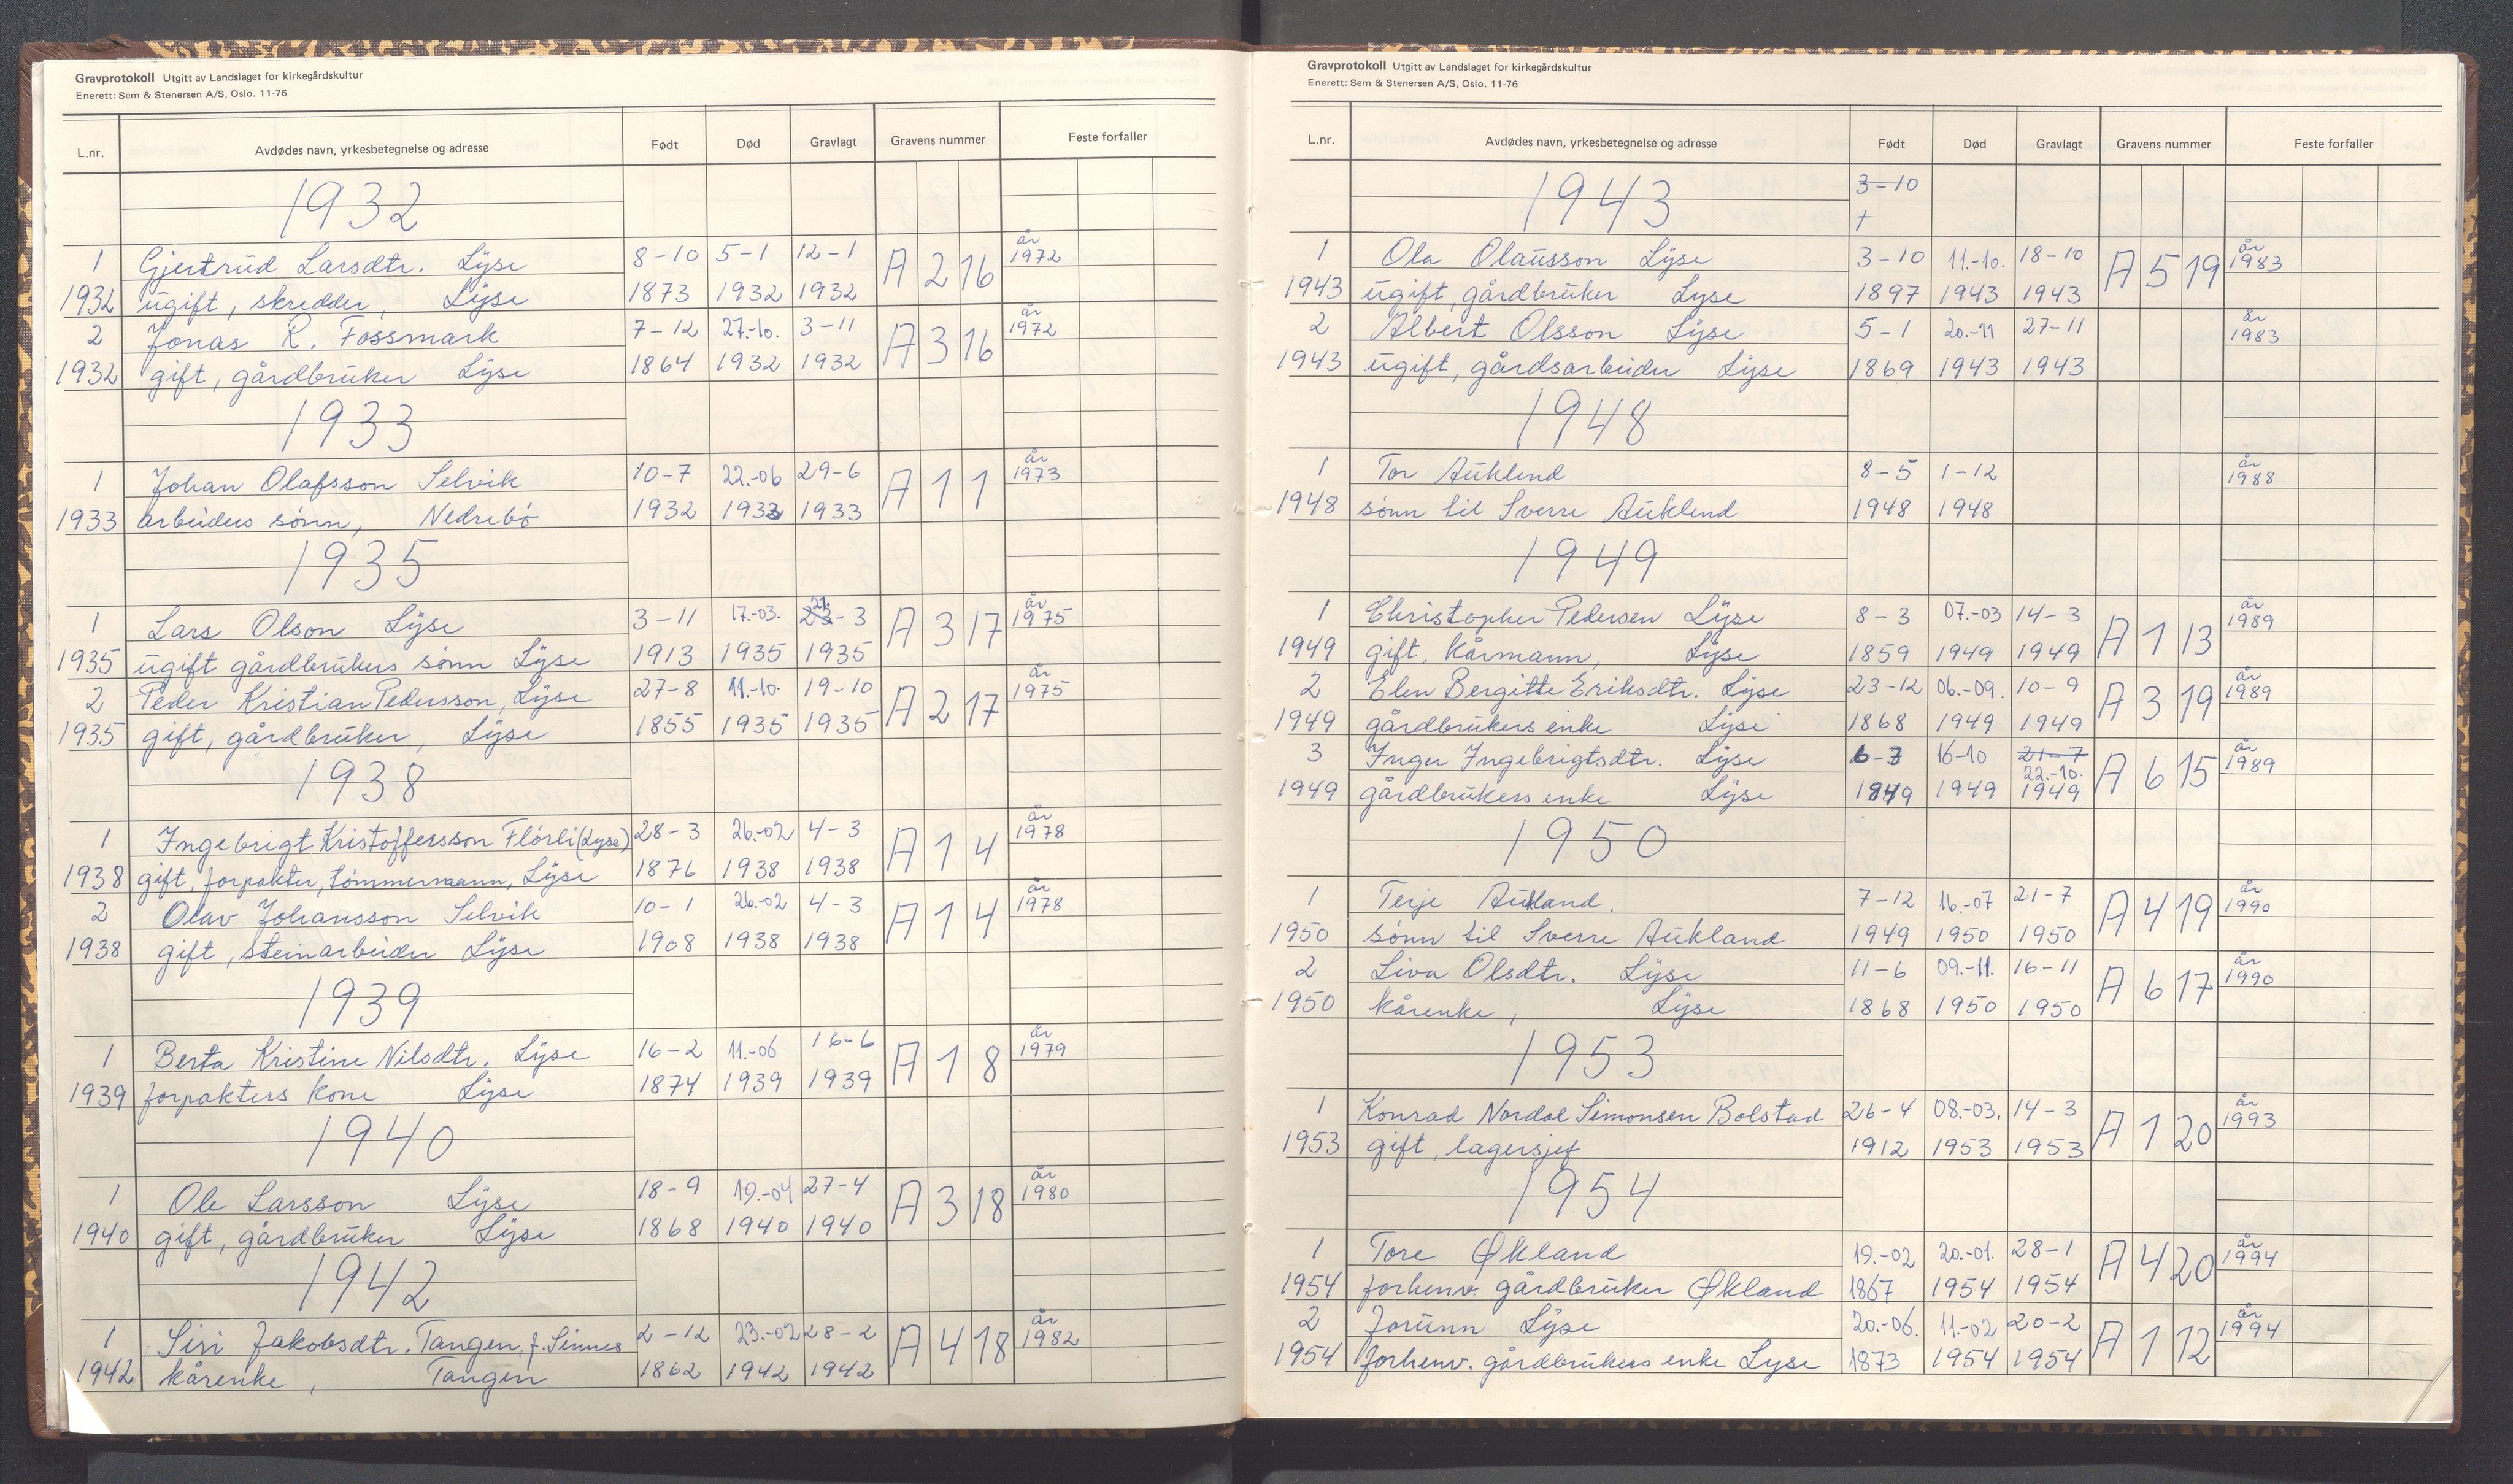 Gravprotokoll Utgitt av Landslaget for kirkegårdskultur
Enerett: Sem & Stenersen A/S, Oslo. 11-76
L.nr. Avdødes navn, yrkesbetegnelse og adresse Født Død Gravlagt Gravens nummer Feste forfaller
1932
1 Gjertrud Larsdtr. Lyse 8-10 5-1 12-1 A 2 16 år 1972
1932 ugift, skredder, Lyse 1873 1932 1932
2 Jonas R. Fossmark 7-12 27.-10. 3-11 A 3 16 år 1972
1932 gift, gårdbruker Lyse 1864 1932 1932
1933
1 Johan Olafsson Selvik 10-7 22.-06 29-6 A 1 1 år 1973
1933 arbeiders sønn, Nedrebö 1932 1933 1933
1935
1 Lars Olson Lyse 3-11 17.-03. 21.-3 A 3 17 år 1975
1935 ugift gårdbrukers sønn Lyse 1913 1935 1935
2 Peder Kristian Pedersson, Lyse 27-8 11.-10. 19-10 A 2 17 år 1975
1935 gift, gårdbruker, Lyse 1855 1935 1935
1938
1 Ingebrigt Kristoffersson Flörli (Lyse) 28-3 26.-02 4-3 A 1 4 år 1978
1938 gift, forpakter, tömmermann, Lyse 1876 1938 1938
2 Olav Johansson Selvik 10-1 26.-02 4-3 A 1 4 år 1978
1938 gift, steinarbeider Lyse 1908 1938 1938
1939
1 Berta Kristine Nilsdtr. Lyse 16-2 11.-06 16-6 A 1 8 år 1979
1939 forpakters kone Lyse 1874 1939 1939
1940
1 Ole Larsson Lyse 18-9 19.-04 27-4 A 3 18 år 1980
1940 gift, gårdbruker Lyse 1868 1940 1940
1942
1 Siri Jakobsdtr. Tangen, f. Sinnes 2-12 23.-02 28-2 A 4 18 år 1982
1942 kårenke, Tangen 1862 1942 1942
Gravprotokoll Utgitt av Landslaget for kirkegårdskultur
Enerett: Sem & Stenersen A/S, Oslo. 11-76
L.nr. Avdødes navn, yrkesbetegnelse og adresse Født Død Gravlagt Gravens nummer Feste forfaller
1943 3-10
+
1 Ola Olausson Lyse 3-10 11.-10. 18-10 A 5 19 år 1983
1943 ugift, gårdbruker Lyse 1897 1943 1943
2 Albert Olsson Lyse 5-1 20.-11 27-11 år 1983
1943 ugift, gårdsarbeider Lyse 1869 1943 1943
1948
1 Tor Auklend 8-5 1-12 år 1988
1948 sønn til Sverre Auklend 1948 1948
1949
1 Christopher Pedersen Lyse 8-3 07.-03 14-3 A 1 13 år 1989
1949 gift, kårmann, Lyse 1859 1949 1949
2 Elen Bergitte Eriksdtr. Lyse 23-12 06.-09. 10-9 A 3 19 år 1989
1949 gårdbrukers enke Lyse 1868 1949 1949
3 Inger Ingebrigtsdtr. Lyse 16-10 21-7 22.-10. A 6 15 år 1989
1949 gårdbrukers enke Lyse 1949 1949
1950
1 Terje Aukland. 7-12 16.-07 21-7 A 4 19 år 1990
1950 sønn til Sverre Aukland 1949 1950 1950
2 Liva Olsdtr. Lyse 11-6 09.-11. 16-11 A 6 17 år 1990
1950 kårenke, Lyse 1868 1950 1950
1953
1 Konrad Nordal Simonsen Bolstad 26-4 08.-03. 14-3 A 1 20 år 1993
1953 gift, lagersjef 1912 1953 1953
1954
1 Tore Økland 19.-02 20.-01. 28-1 A 4 20 år 1994
1954 forhenv. gårdbruker Økland 1867 1954 1954
2 Jorunn Lyse 20.-06. 11.-02 20-2 A 1 12 år 1994
1954 forhenv. gårdbrukers enke Lyse 1873 1954 1954